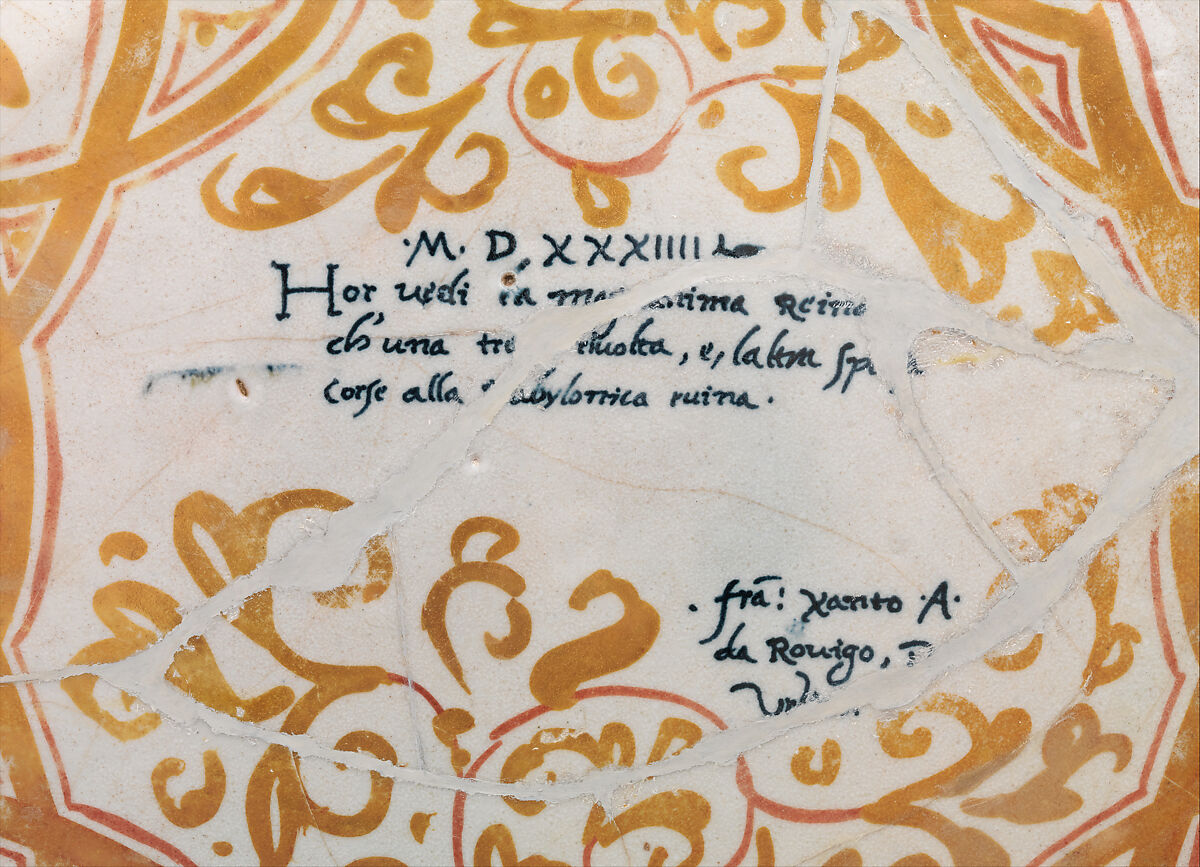 ·M· D, XXXIIII
Hor, uedi la magnanima Reina
ch' una riuolta, e, laltra
corse alla Babylonica ruina.
. frã: Xanto ·A·
da Rouigo, ĩ